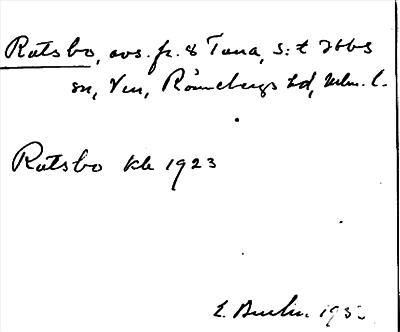 Ratsbo, avs. fr. 8 Tuna, S:t Ibbs
sn, Ven, Rönnebergs hd, Mlm. l.
Ratsbo kk 1923
E.